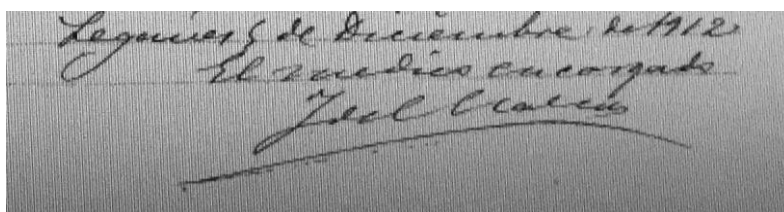 Leganes 5 de Diciembre de 1912
El medico encargado